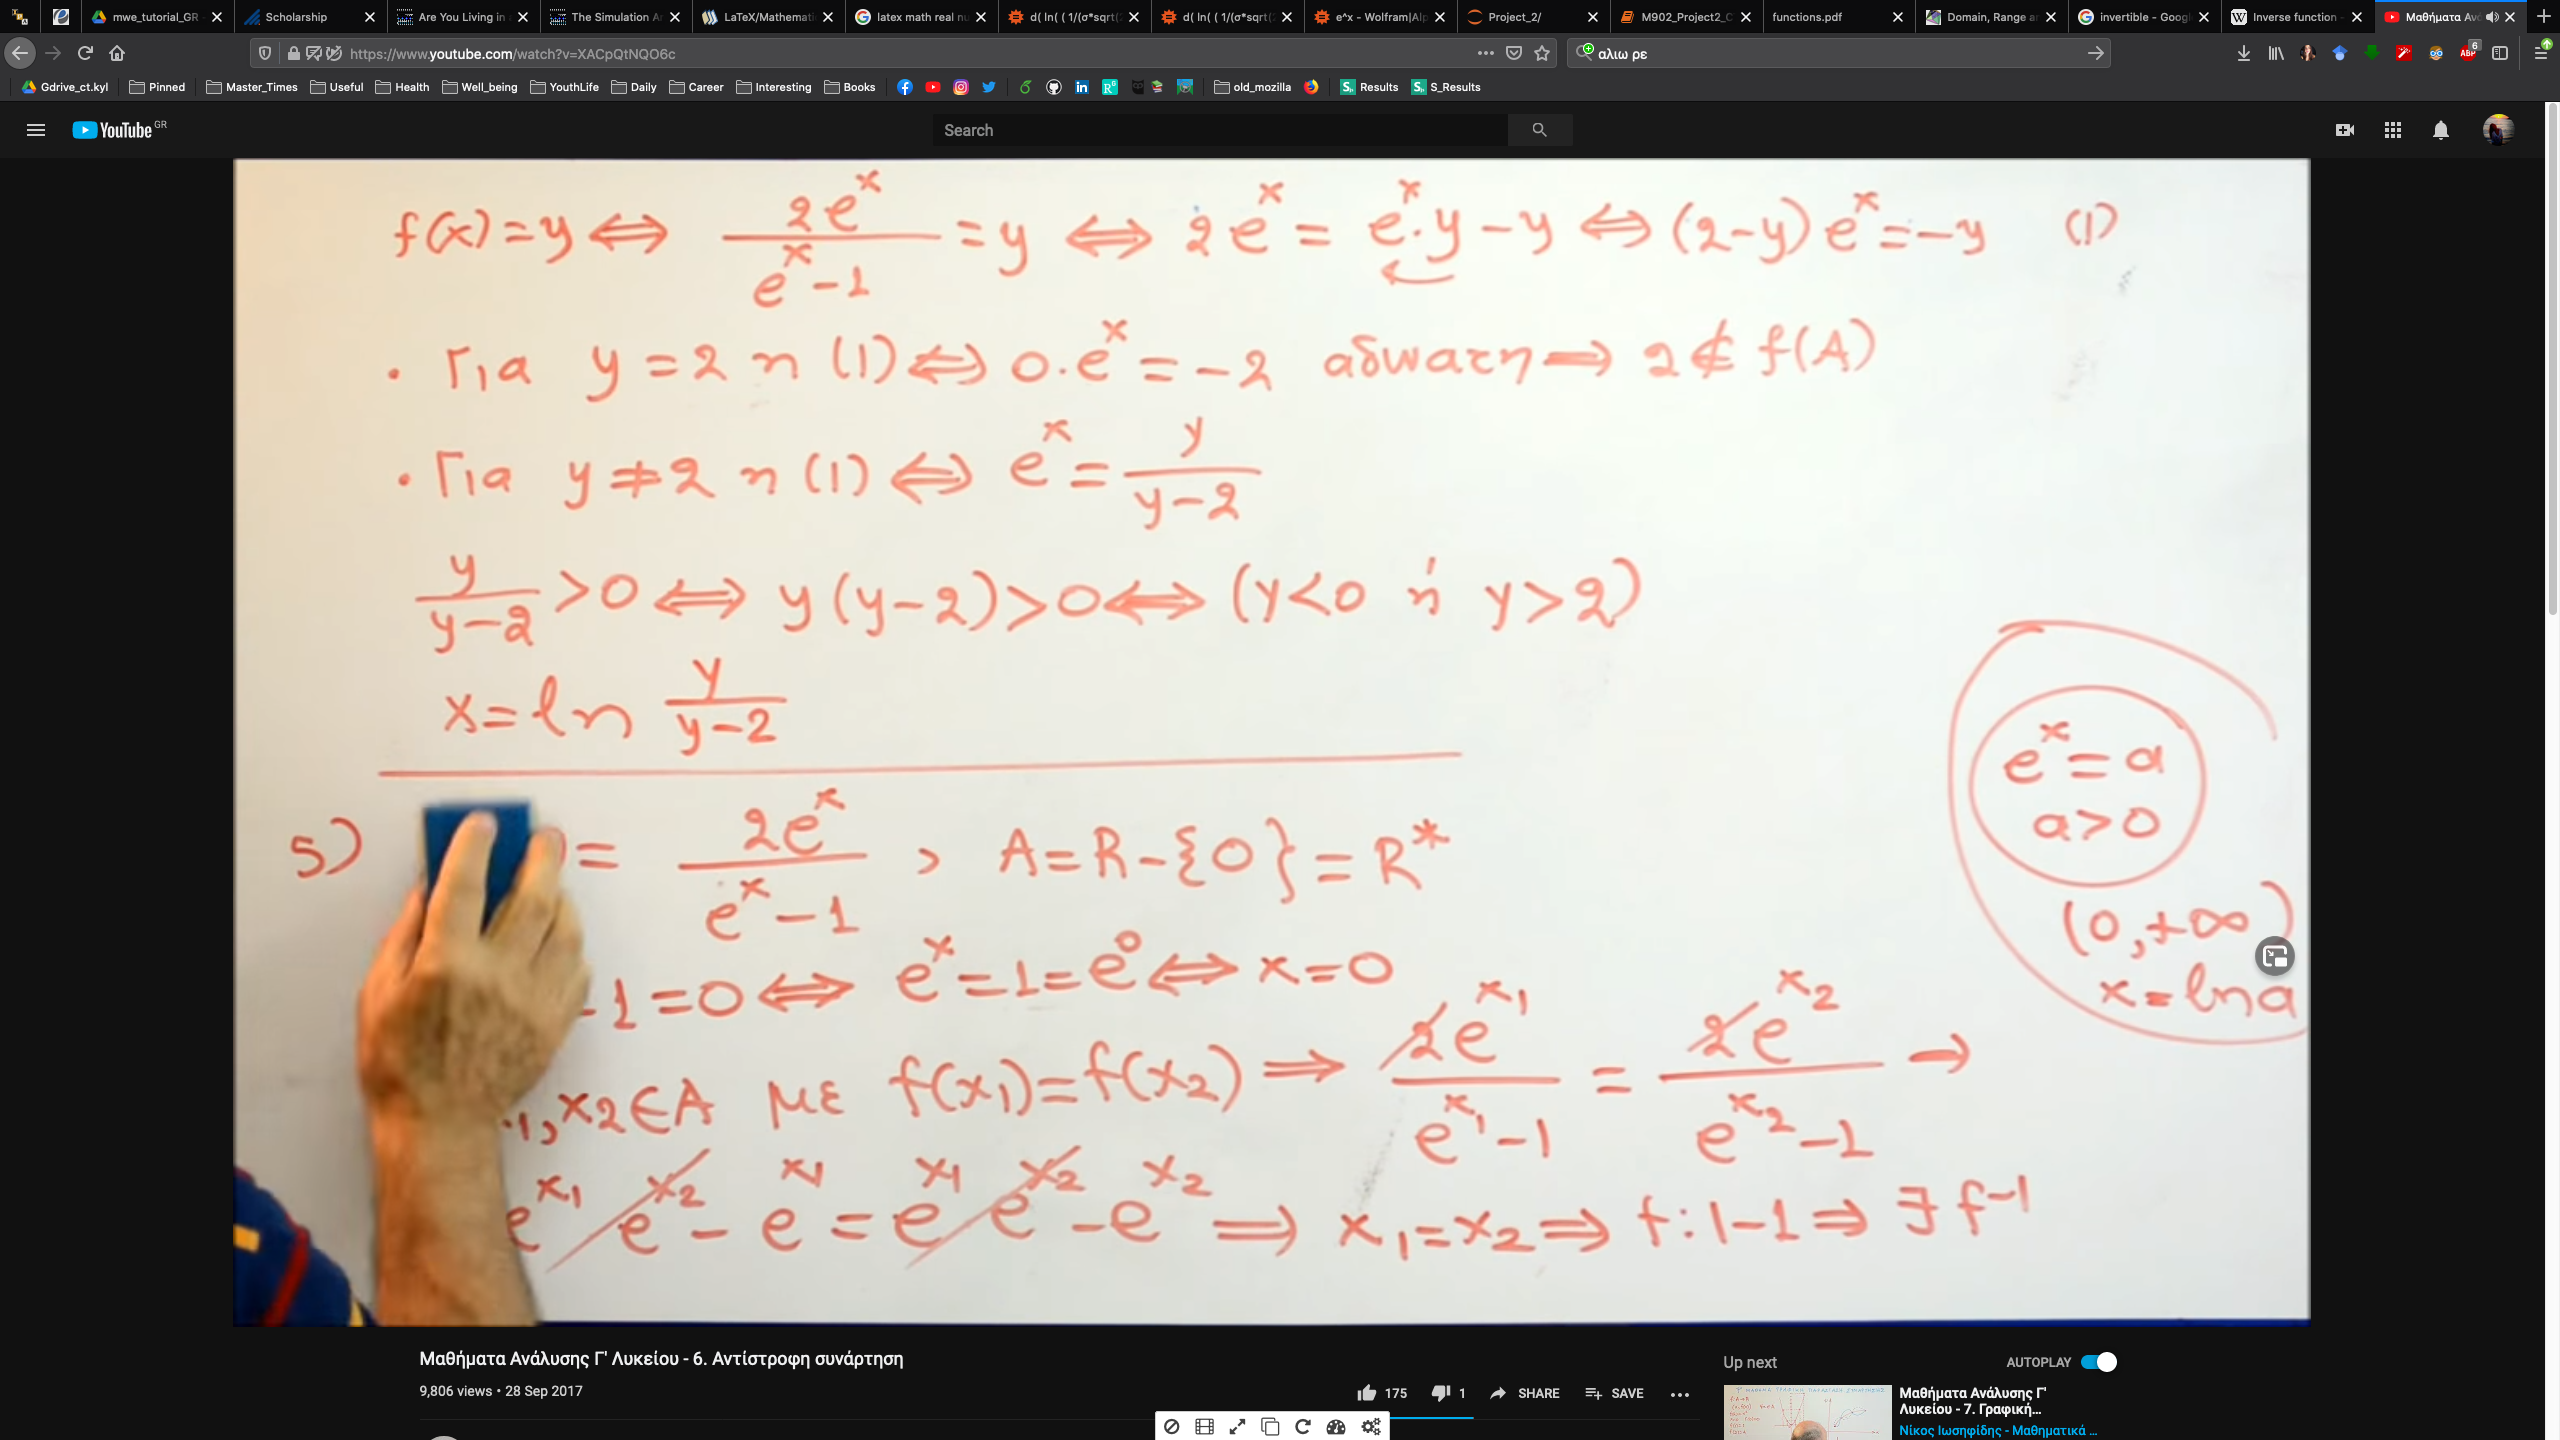 mwe_tutorial_GR
Scholarship
Are You Living in
The Simulation A
LaTeX/Mathemati
latex math real nu
d( ln( ( 1/(σ*sqrt(2
d( ln( ( 1/(σ*sqrt(2
e^x - Wolfram|Alp
Project_2/
M902_Project2_C
functions.pdf
Domain, Range a
invertible - Googl
Inverse function -
Μαθήματα Ανά
https://www.youtube.com/watch?v=XACpQtNQO6c
αλιω ρε
6
Gdrive_ct.kyl Pinned Master_Times Useful Health Well_being YouthLife Daily Career Interesting Books old_mozilla Results S_Results
YouTube GR
Search
f(x)=y ⇔ 2e^x/(e^x-1) = y ⇔ 2e^x = e^x·y-y ⇔ (2-y)e^x=-y (1)
· Για y=2 η (1) ⇔ 0·e^x=-2 αδυνατη ⇒ 2∉f(A)
· Για y≠2 η (1) ⇔ e^x = y/(y-2)
y/(y-2) >0 ⇔ y(y-2)>0 ⇔ (y<0 ή y>2)
x=ln y/(y-2)
e^x=a
a>0
(0,+∞)
x=lna
5) )= 2e^x/(e^x-1) , A=R-{0}=R*
-1=0 ⇔ e^x=1=e^0 ⇔ x=0
1,x2∈A με f(x1)=f(x2) ⇒ 2e^x1/(e^x1-1) = 2e^x2/(e^x2-1) ⇒
e^x1 e^x2 - e^x1 = e^x1 e^x2 - e^x2 ⇒ x1=x2 ⇒ f:1-1 ⇒ ∃f^-1
Μαθήματα Ανάλυσης Γ' Λυκείου - 6. Αντίστροφη συνάρτηση
9,806 views • 28 Sep 2017
175 1 SHARE SAVE
Up next
AUTOPLAY
Μαθήματα Ανάλυσης Γ'
Λυκείου - 7. Γραφική...
Νίκος Ιωσηφίδης - Μαθηματικά ...